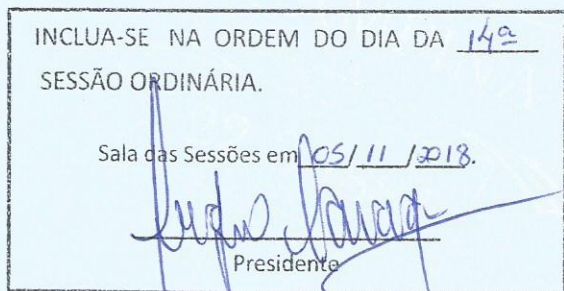 INCLUA-SE NA ORDEM DO DIA DA 14ª
SESSÃO ORDINÁRIA.
Sala das Sessões em 05/11/2018.
Presidente